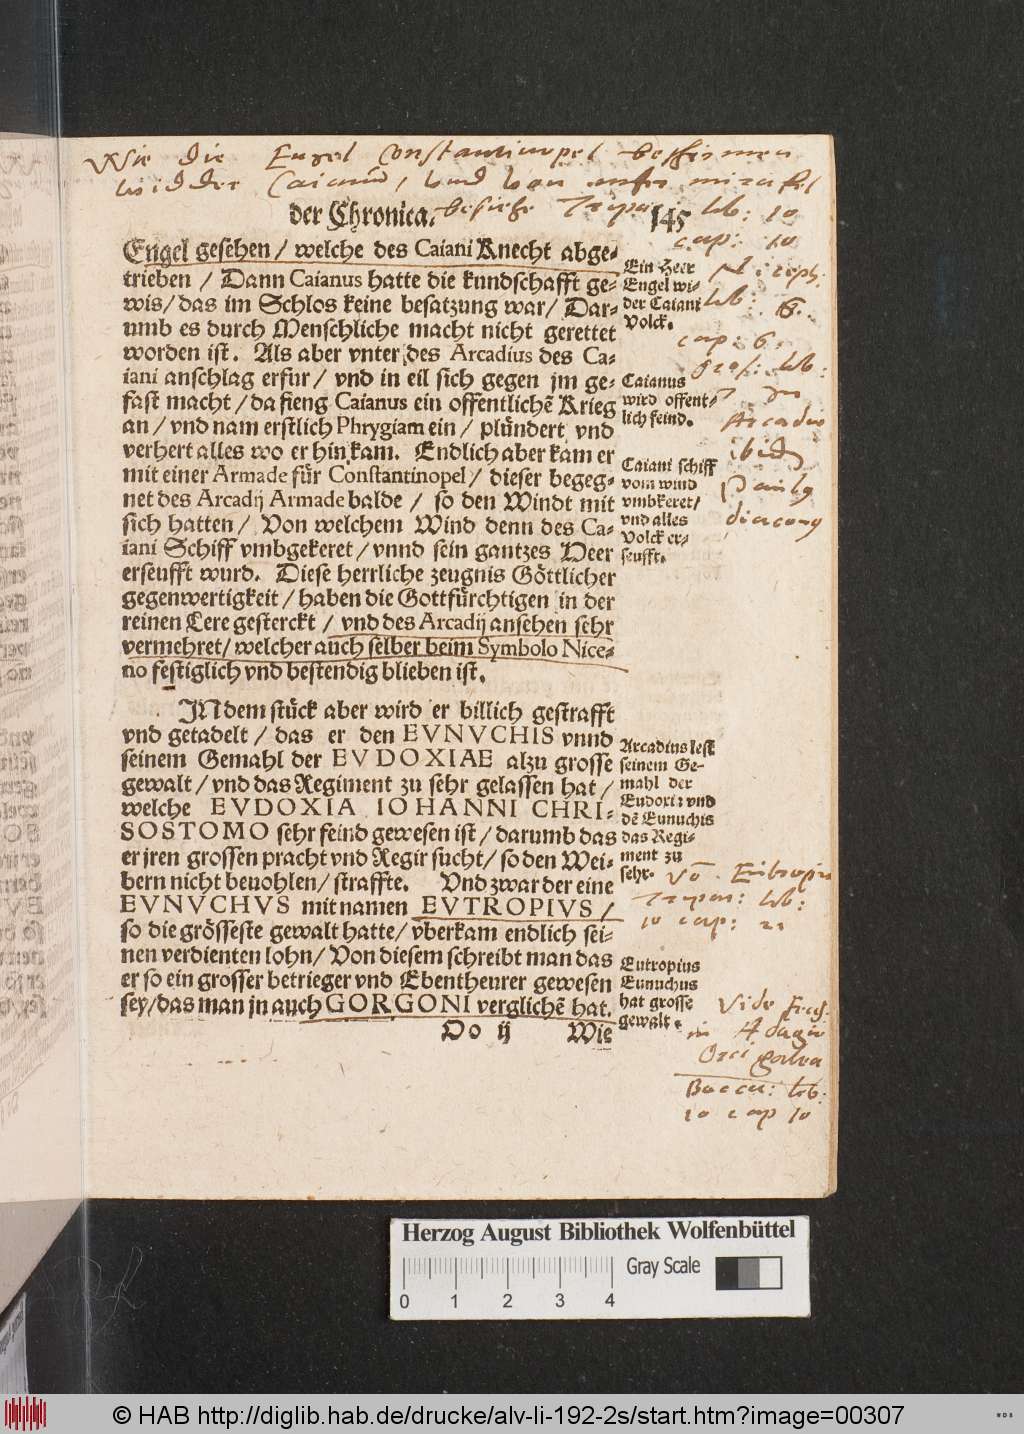 Wie die Engel Constantinopel beschirmen
widder Caianū, vnd von
der Chronica. besiehe Tripar: lib: 10
145
cap: 10
Engel gesehen / welche des Caiani Knecht abge-
trieben / Dann Caianus hatte die kundschafft ge-
wis / das im Schlos keine besatzung war / Dar-
umb es durch Menschliche macht nicht gerettet
worden ist. Als aber vnter des Arcadius des Ca-
iani anschlag erfur / vnd in eil sich gegen jm ge-
fast macht / da fieng Caianus ein offentlichē Krieg
an / vnd nam erstlich Phrygiam ein / plündert vnd
verhert alles wo er hin kam. Endlich aber kam er
mit einer Armade für Constantinopel / dieser begeg-
net des Arcadij Armade balde / so den Windt mit
sich hatten / Von welchem Wind denn des Ca-
iani Schiff vmbgekeret / vnnd sein gantzes Heer
erseufft wurd. Diese herrliche zeugnis Göttlicher
gegenwertigkeit / haben die Gottfürchtigen in der
reinen Lere gesterckt / vnd des Arcadij ansehen sehr
vermehret / welcher auch selber beim Symbolo Nice-
no festiglich vnd bestendig blieben ist.
Ein Heer
Engel wi-
der Caiani
Volck.
Niceph:
lib:
cap: 6.
Oros: lib:
7
Caianus
wird offent-
lich feind.
Arcadio
ibid
Caiani schiff
vom wind
vmbkeret /
vnd alles
Volck er-
seufft.
Paulus
diaconus
JN dem stück aber wird er billich gestrafft
vnd getadelt / das er den EVNVCHIS vnnd
seinem Gemahl der EVDOXIAE alzu grosse
gewalt / vnd das Regiment zu sehr gelassen hat /
welche EVDOXIA IOHANNI CHRI-
SOSTOMO sehr feind gewesen ist / darumb das
er jren grossen pracht vnd Regir sucht / so den Wei-
bern nicht beuohlen / straffte. Vnd zwar der eine
EVNVCHVS mit namen EVTROPIVS /
so die grösseste gewalt hatte / vberkam endlich sei-
nen verdienten lohn / Von diesem schreibt man das
er so ein grosser betrieger vnd Ebentheurer gewesen
sey / das man jn auch GORGONI verglichē hat.
Arcadius lest
seinem Ge-
mahl der
Eudoxiæ vnd
dē Eunuchis
das Regi-
ment zu
sehr.
Vō Eutropio
Tripar: lib:
10 cap:
Eutropius
Eunuchus
hat grosse
gewalt.
Vide
in Adagio
Orci galea
Do ij
Wie
lib:
10 cap 10
Herzog August Bibliothek Wolfenbüttel
Gray Scale
0 1 2 3 4
© HAB http://diglib.hab.de/drucke/alv-li-192-2s/start.htm?image=00307
WDB